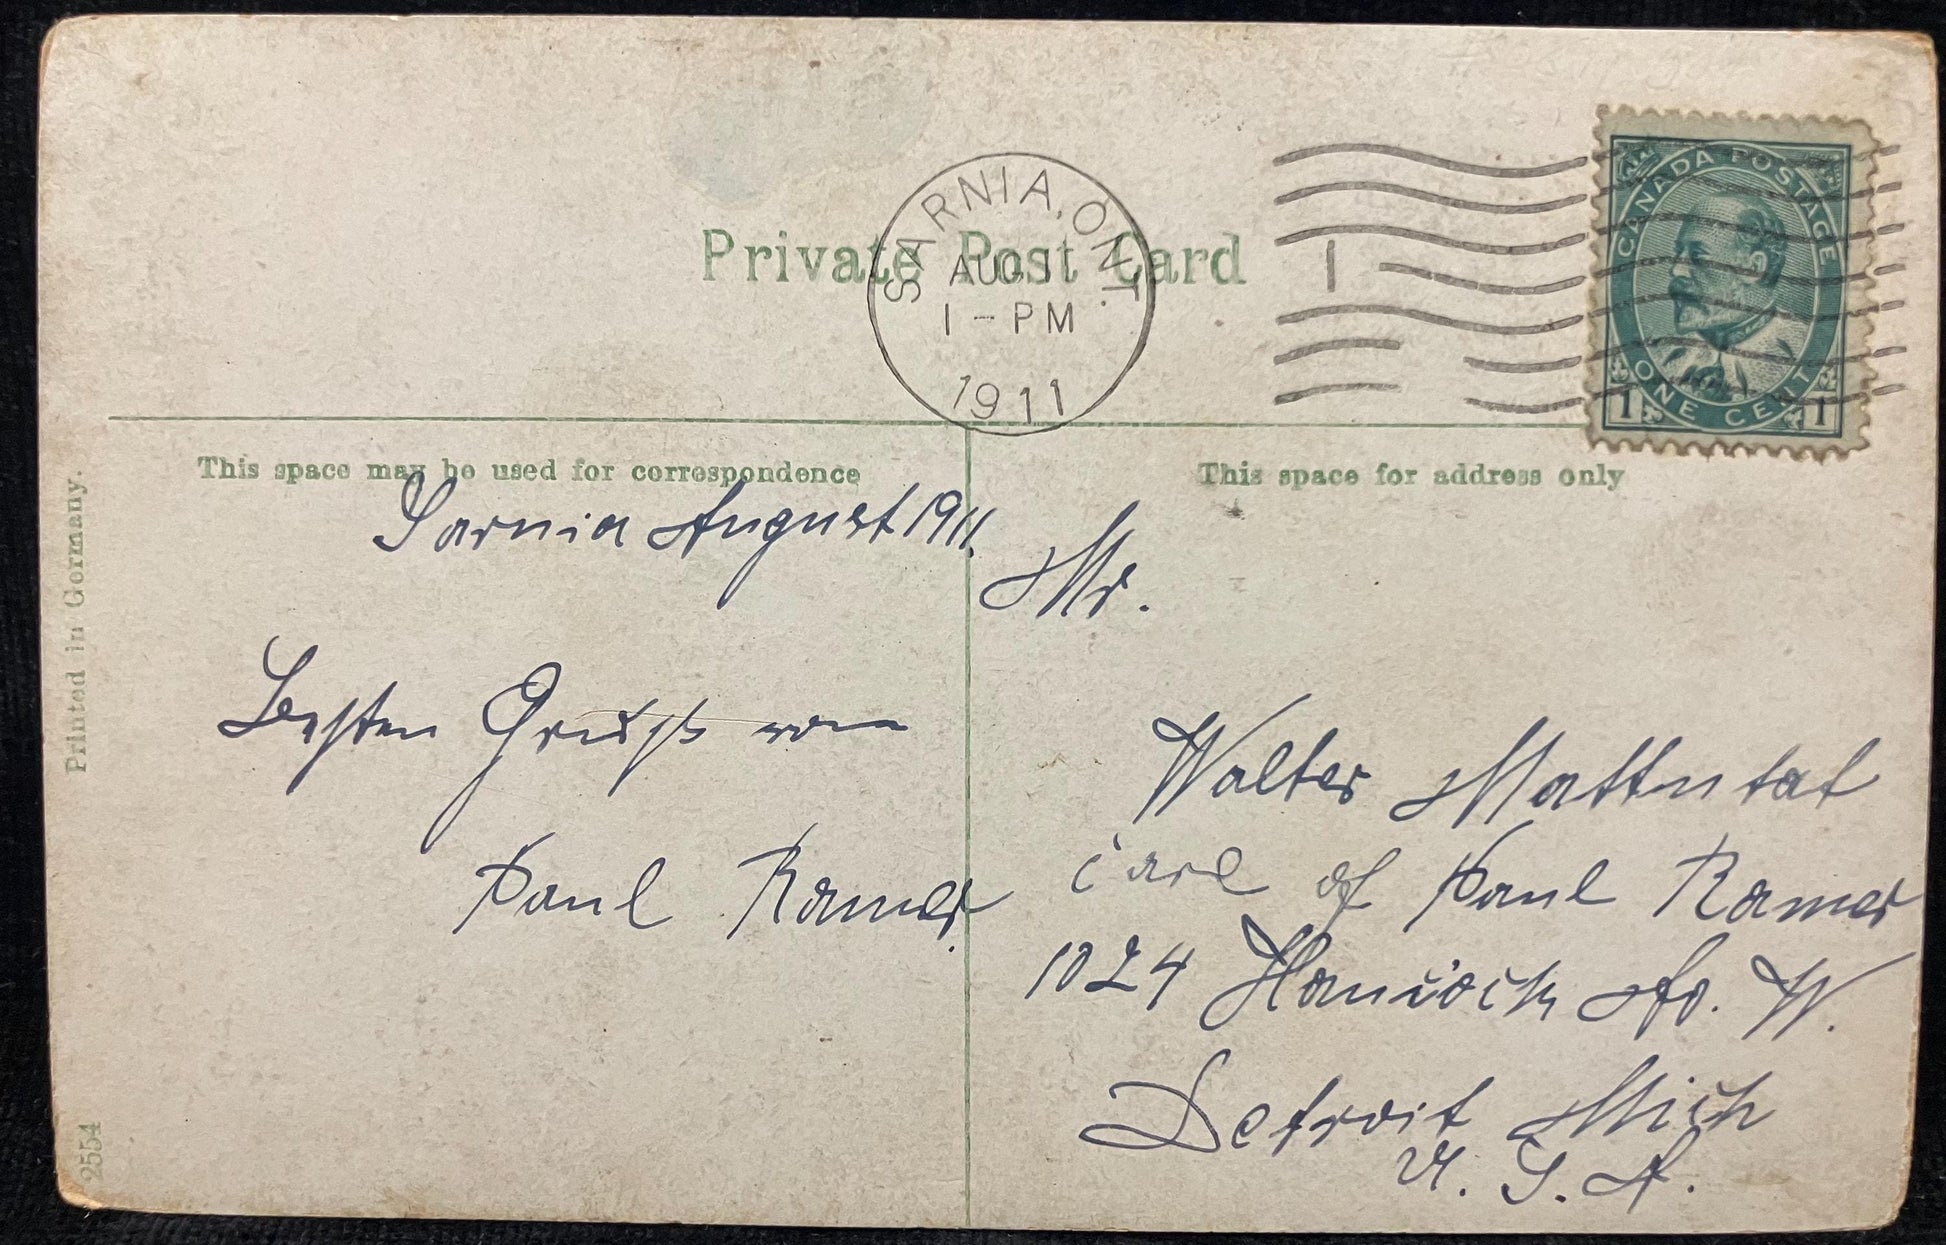 SARNIA, ONT.
AUG 1
1 - PM
1911
1
CANADA POSTAGE
ONE CENT
1 1
Private Post Card
This space may be used for correspondence
Sarnia August 1911.
Besten Gruß von
Paul Ramer.
This space for address only
Mr.
Walter Mattutat
care of Paul Ramer
1024 Hancock Av. W.
Detroit Mich
U. S. A.
Printed in Germany.
2554